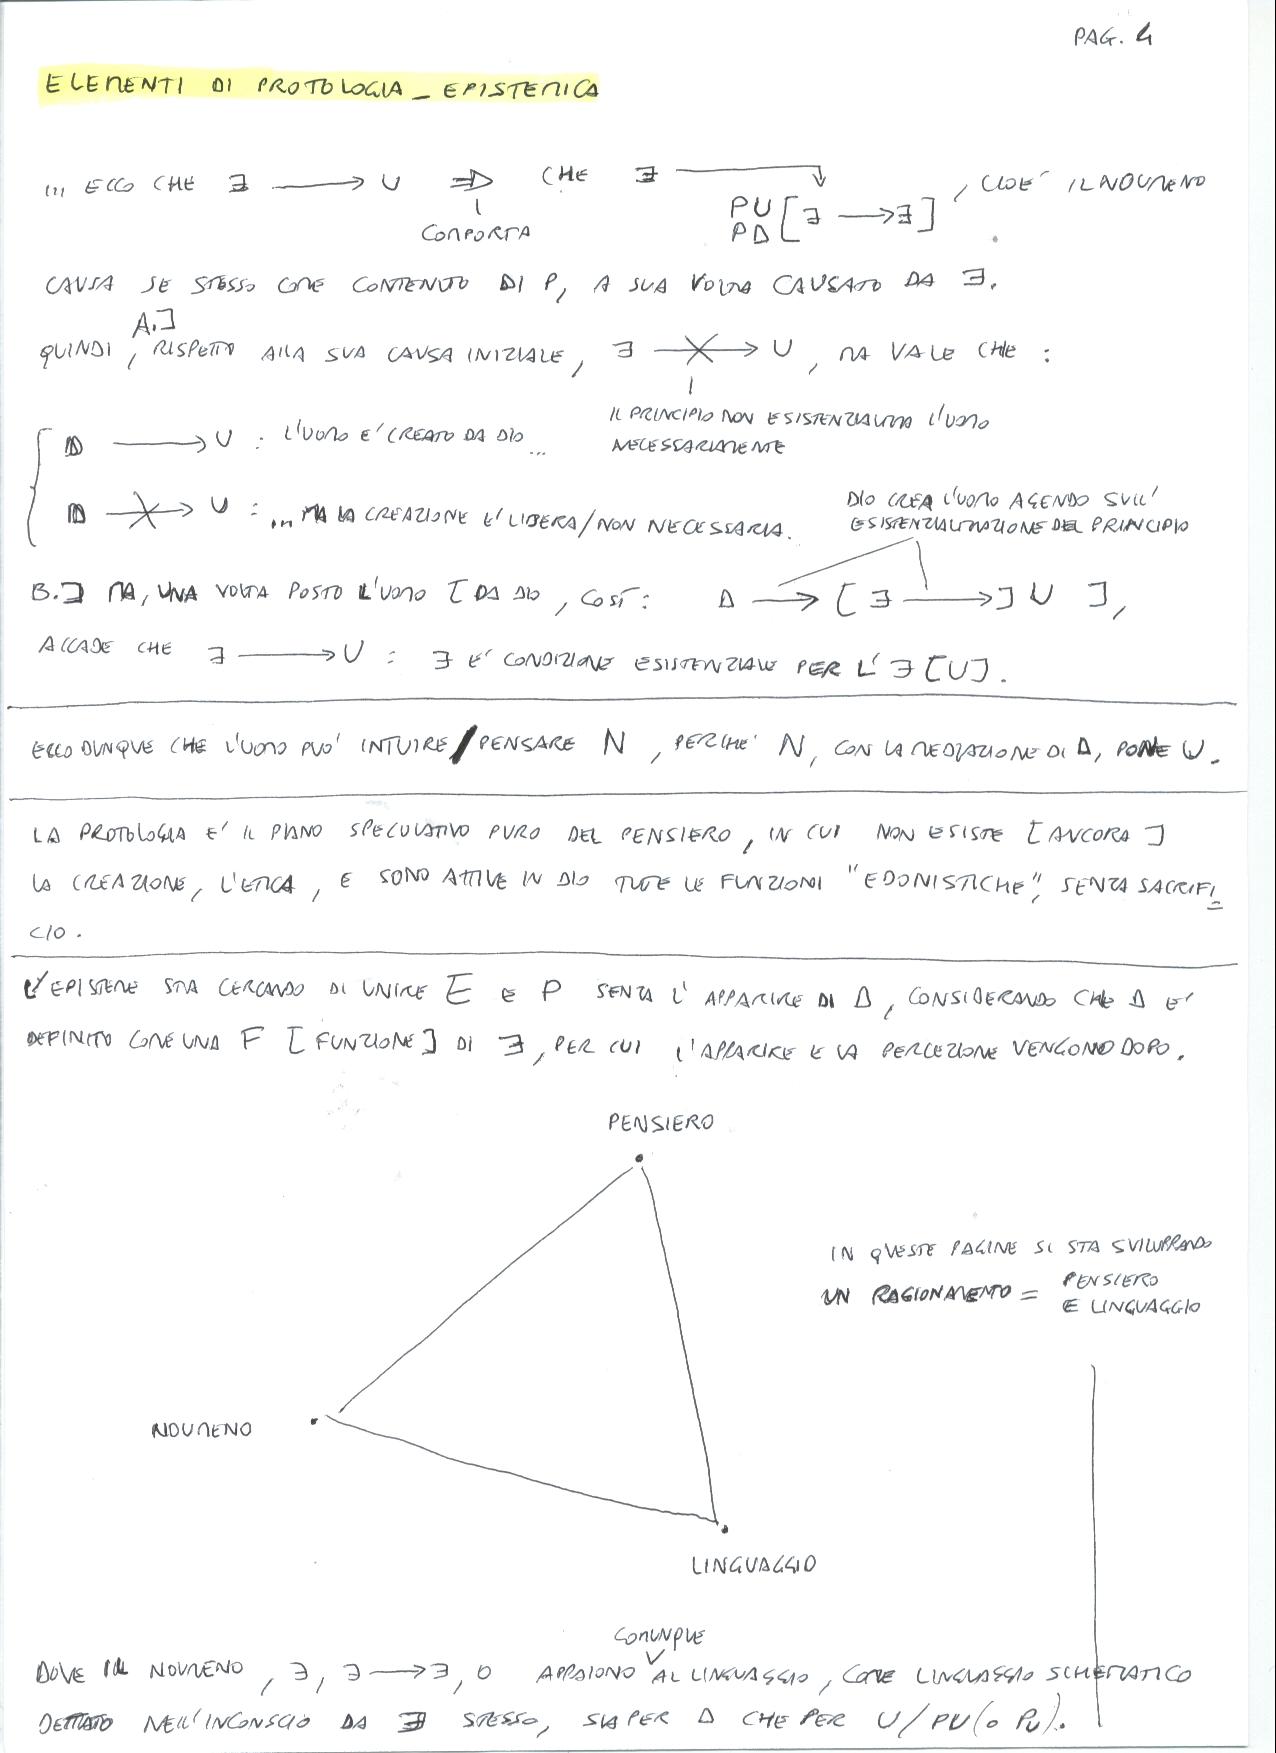 PAG. 4
ELEMENTI DI PROTOLOGIA_EPISTEMICA
... ECCO CHE ∃ → U ⇒ CHE ∃ → PU PD [∃ → ∃], CIOE' IL NOUMENO
COMPORTA
CAUSA SE STESSO COME CONTENUTO DI P, A SUA VOLTA CAUSATO DA ∃.
A.]
QUINDI, RISPETTO ALLA SUA CAUSA INIZIALE, ∃ -X-> U, MA VALE CHE :
IL PRINCIPIO NON ESISTENZIALIZZA L'UOMO
NECESSARIAMENTE
D → U : L'UOMO E' CREATO DA DIO ...
D -X-> U : ... MA LA CREAZIONE E' LIBERA/NON NECESSARIA.
DIO CREA L'UOMO AGENDO SULL'
ESISTENZIALIZZAZIONE DEL PRINCIPIO
B.] MA, UNA VOLTA POSTO L'UOMO [DA DIO, COSÍ: Δ → [∃ →] U ],
ACCADE CHE ∃ → U : ∃ E' CONDIZIONE ESISTENZIALE PER L' ∃ [U].
ECCO DUNQUE CHE L'UOMO PUO' INTUIRE/PENSARE N, PERCHE' N, CON LA MEDIAZIONE DI Δ, PONE U.
LA PROTOLOGIA E' IL PIANO SPECULATIVO PURO DEL PENSIERO, IN CUI NON ESISTE [ANCORA]
LA CREAZIONE, L'ETICA, E SONO ATTIVE IN DIO TUTTE LE FUNZIONI "EDONISTICHE", SENZA SACRIFI=
CIO.
L'EPISTEME STA CERCANDO DI UNIRE E e P SENZA L'APPARIRE DI Δ, CONSIDERANDO CHE Δ E'
DEFINITO COME UNA F [FUNZIONE] DI ∃, PER CUI L'APPARIRE E LA PERCEZIONE VENGONO DOPO.
PENSIERO
IN QUESTE PAGINE SI STA SVILUPPANDO
UN RAGIONAMENTO = PENSIERO
E LINGUAGGIO
NOUMENO
LINGUAGGIO
COMUNQUE
DOVE IL NOUMENO, ∃, ∃ → ∃, O APPAIONO AL LINGUAGGIO, COME LINGUAGGIO SCHEMATICO
DETTATO NELL'INCONSCIO DA ∃ STESSO, SIA PER Δ CHE PER U/PU(O PU).